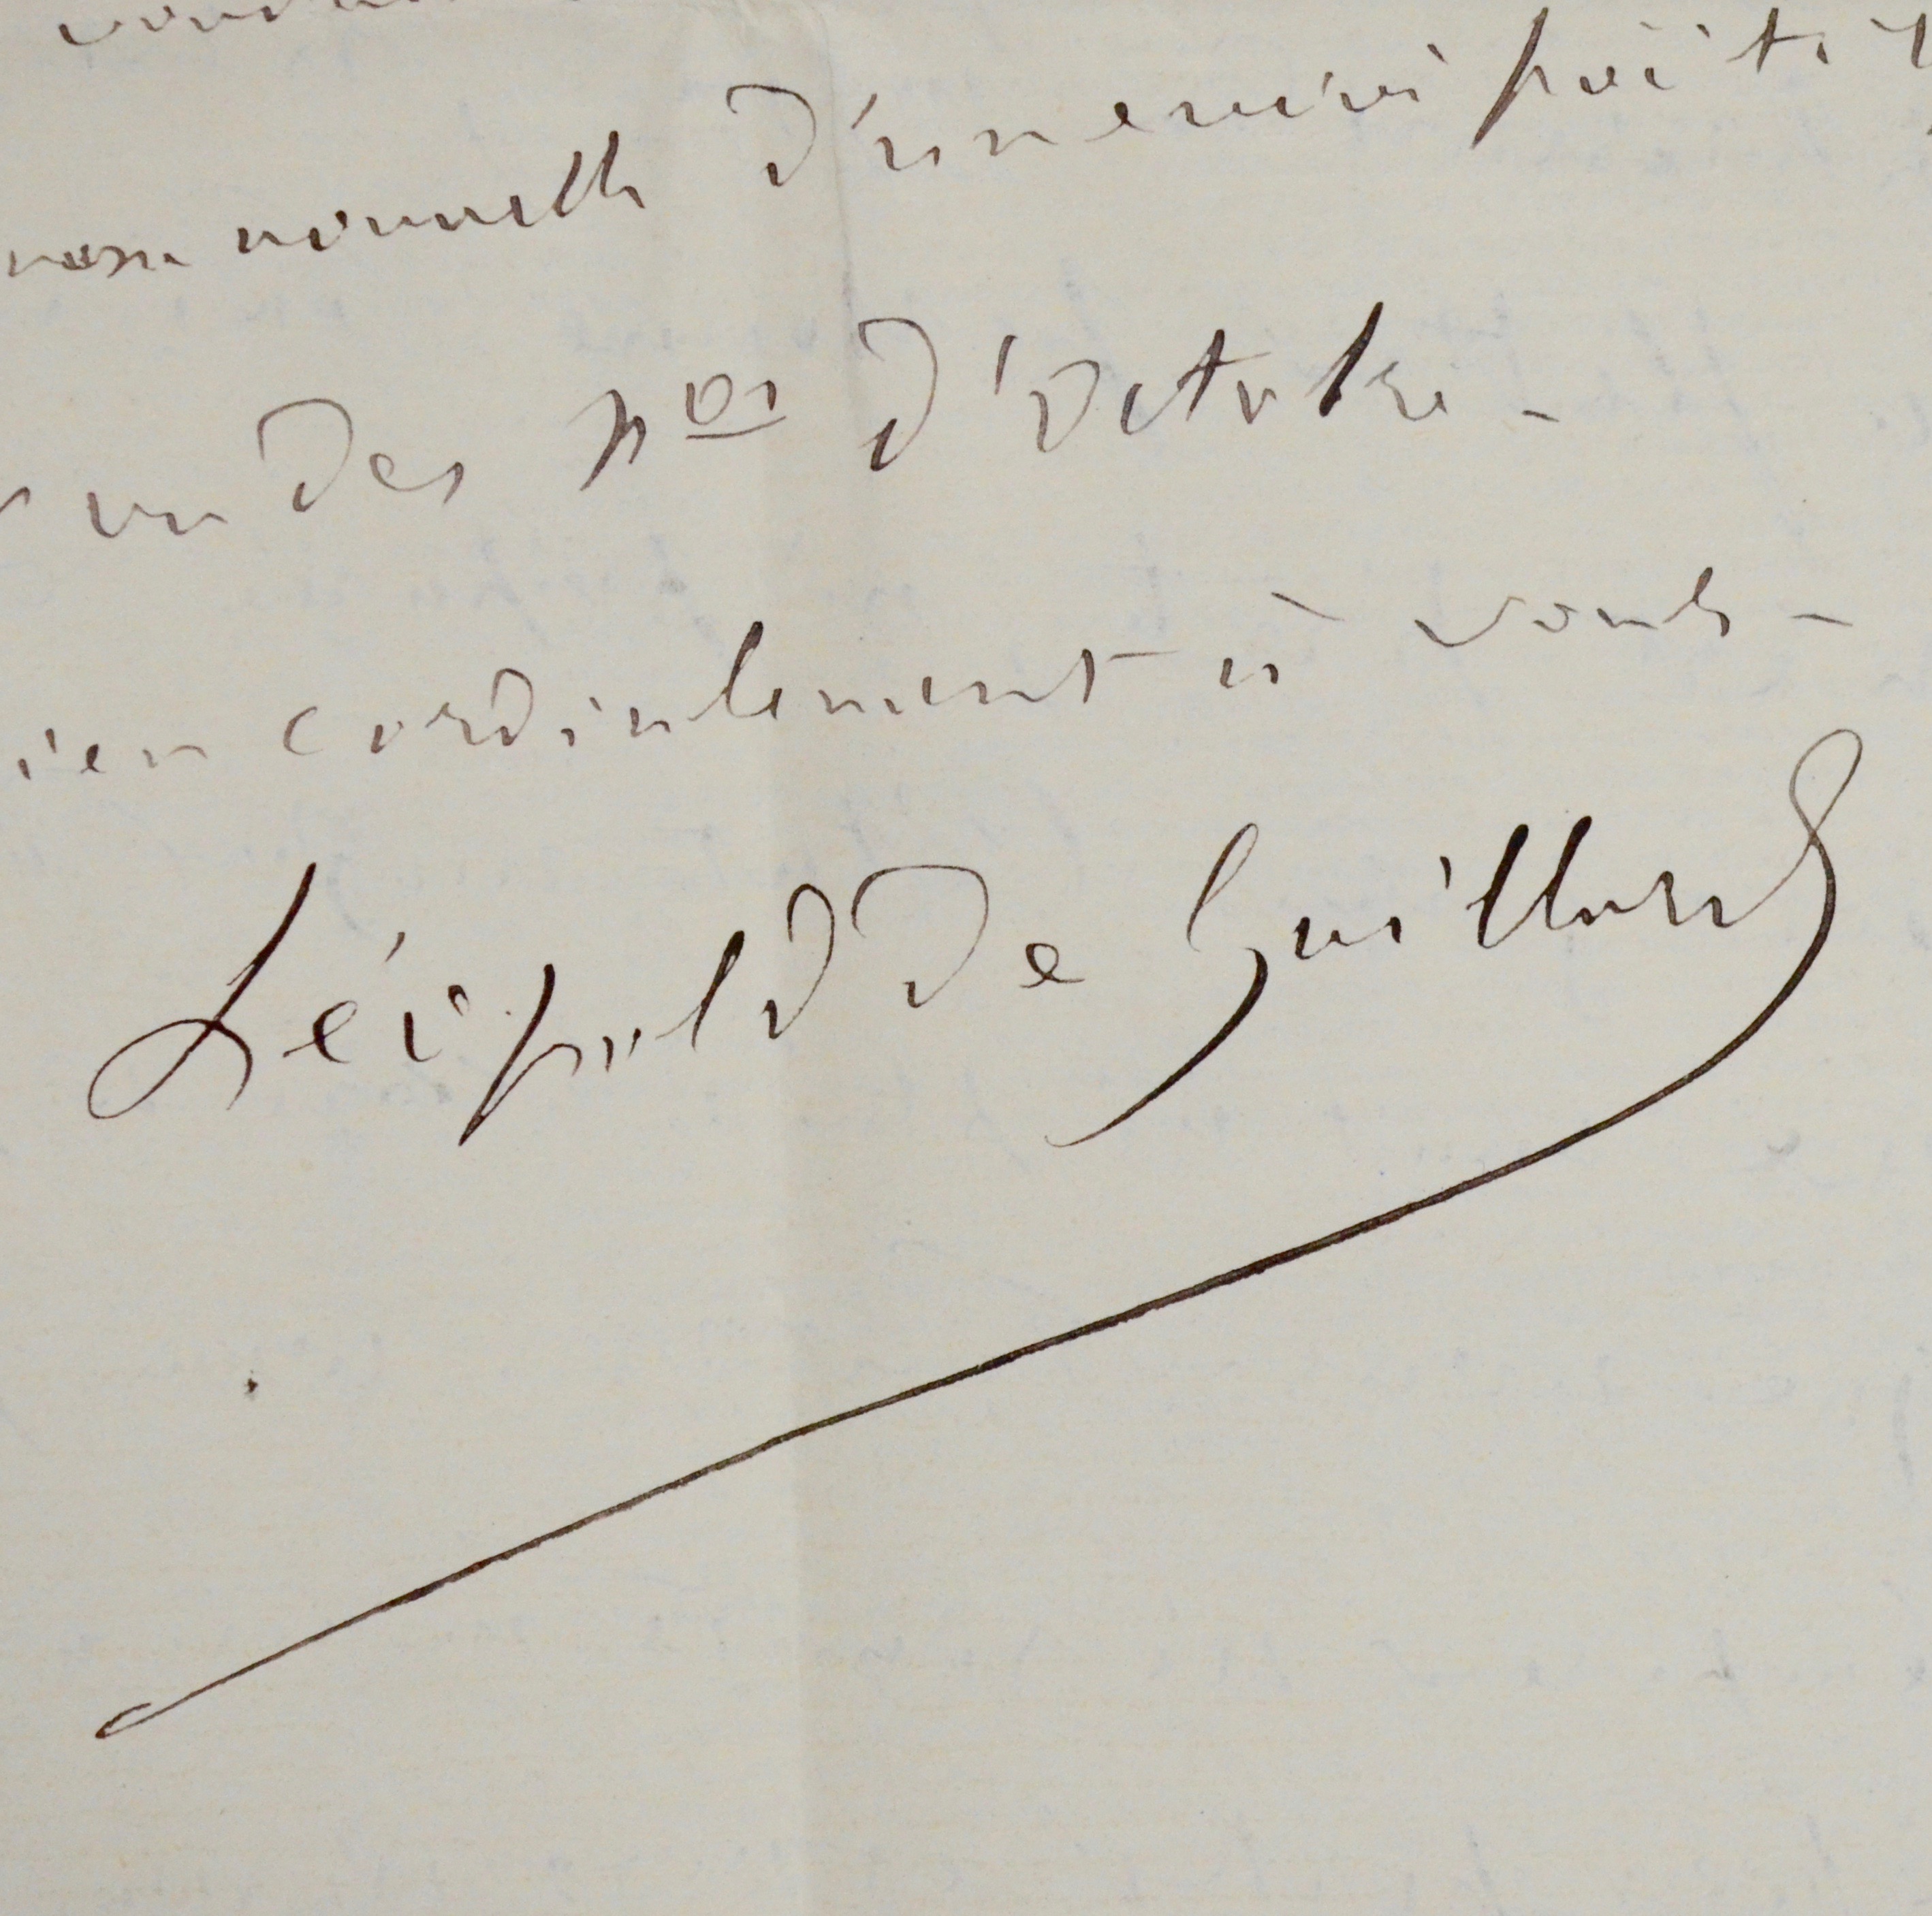 nouvelle d'un envoi
un des nos d'Octobre -
cordialement à vous -
Léopold de Gaillard